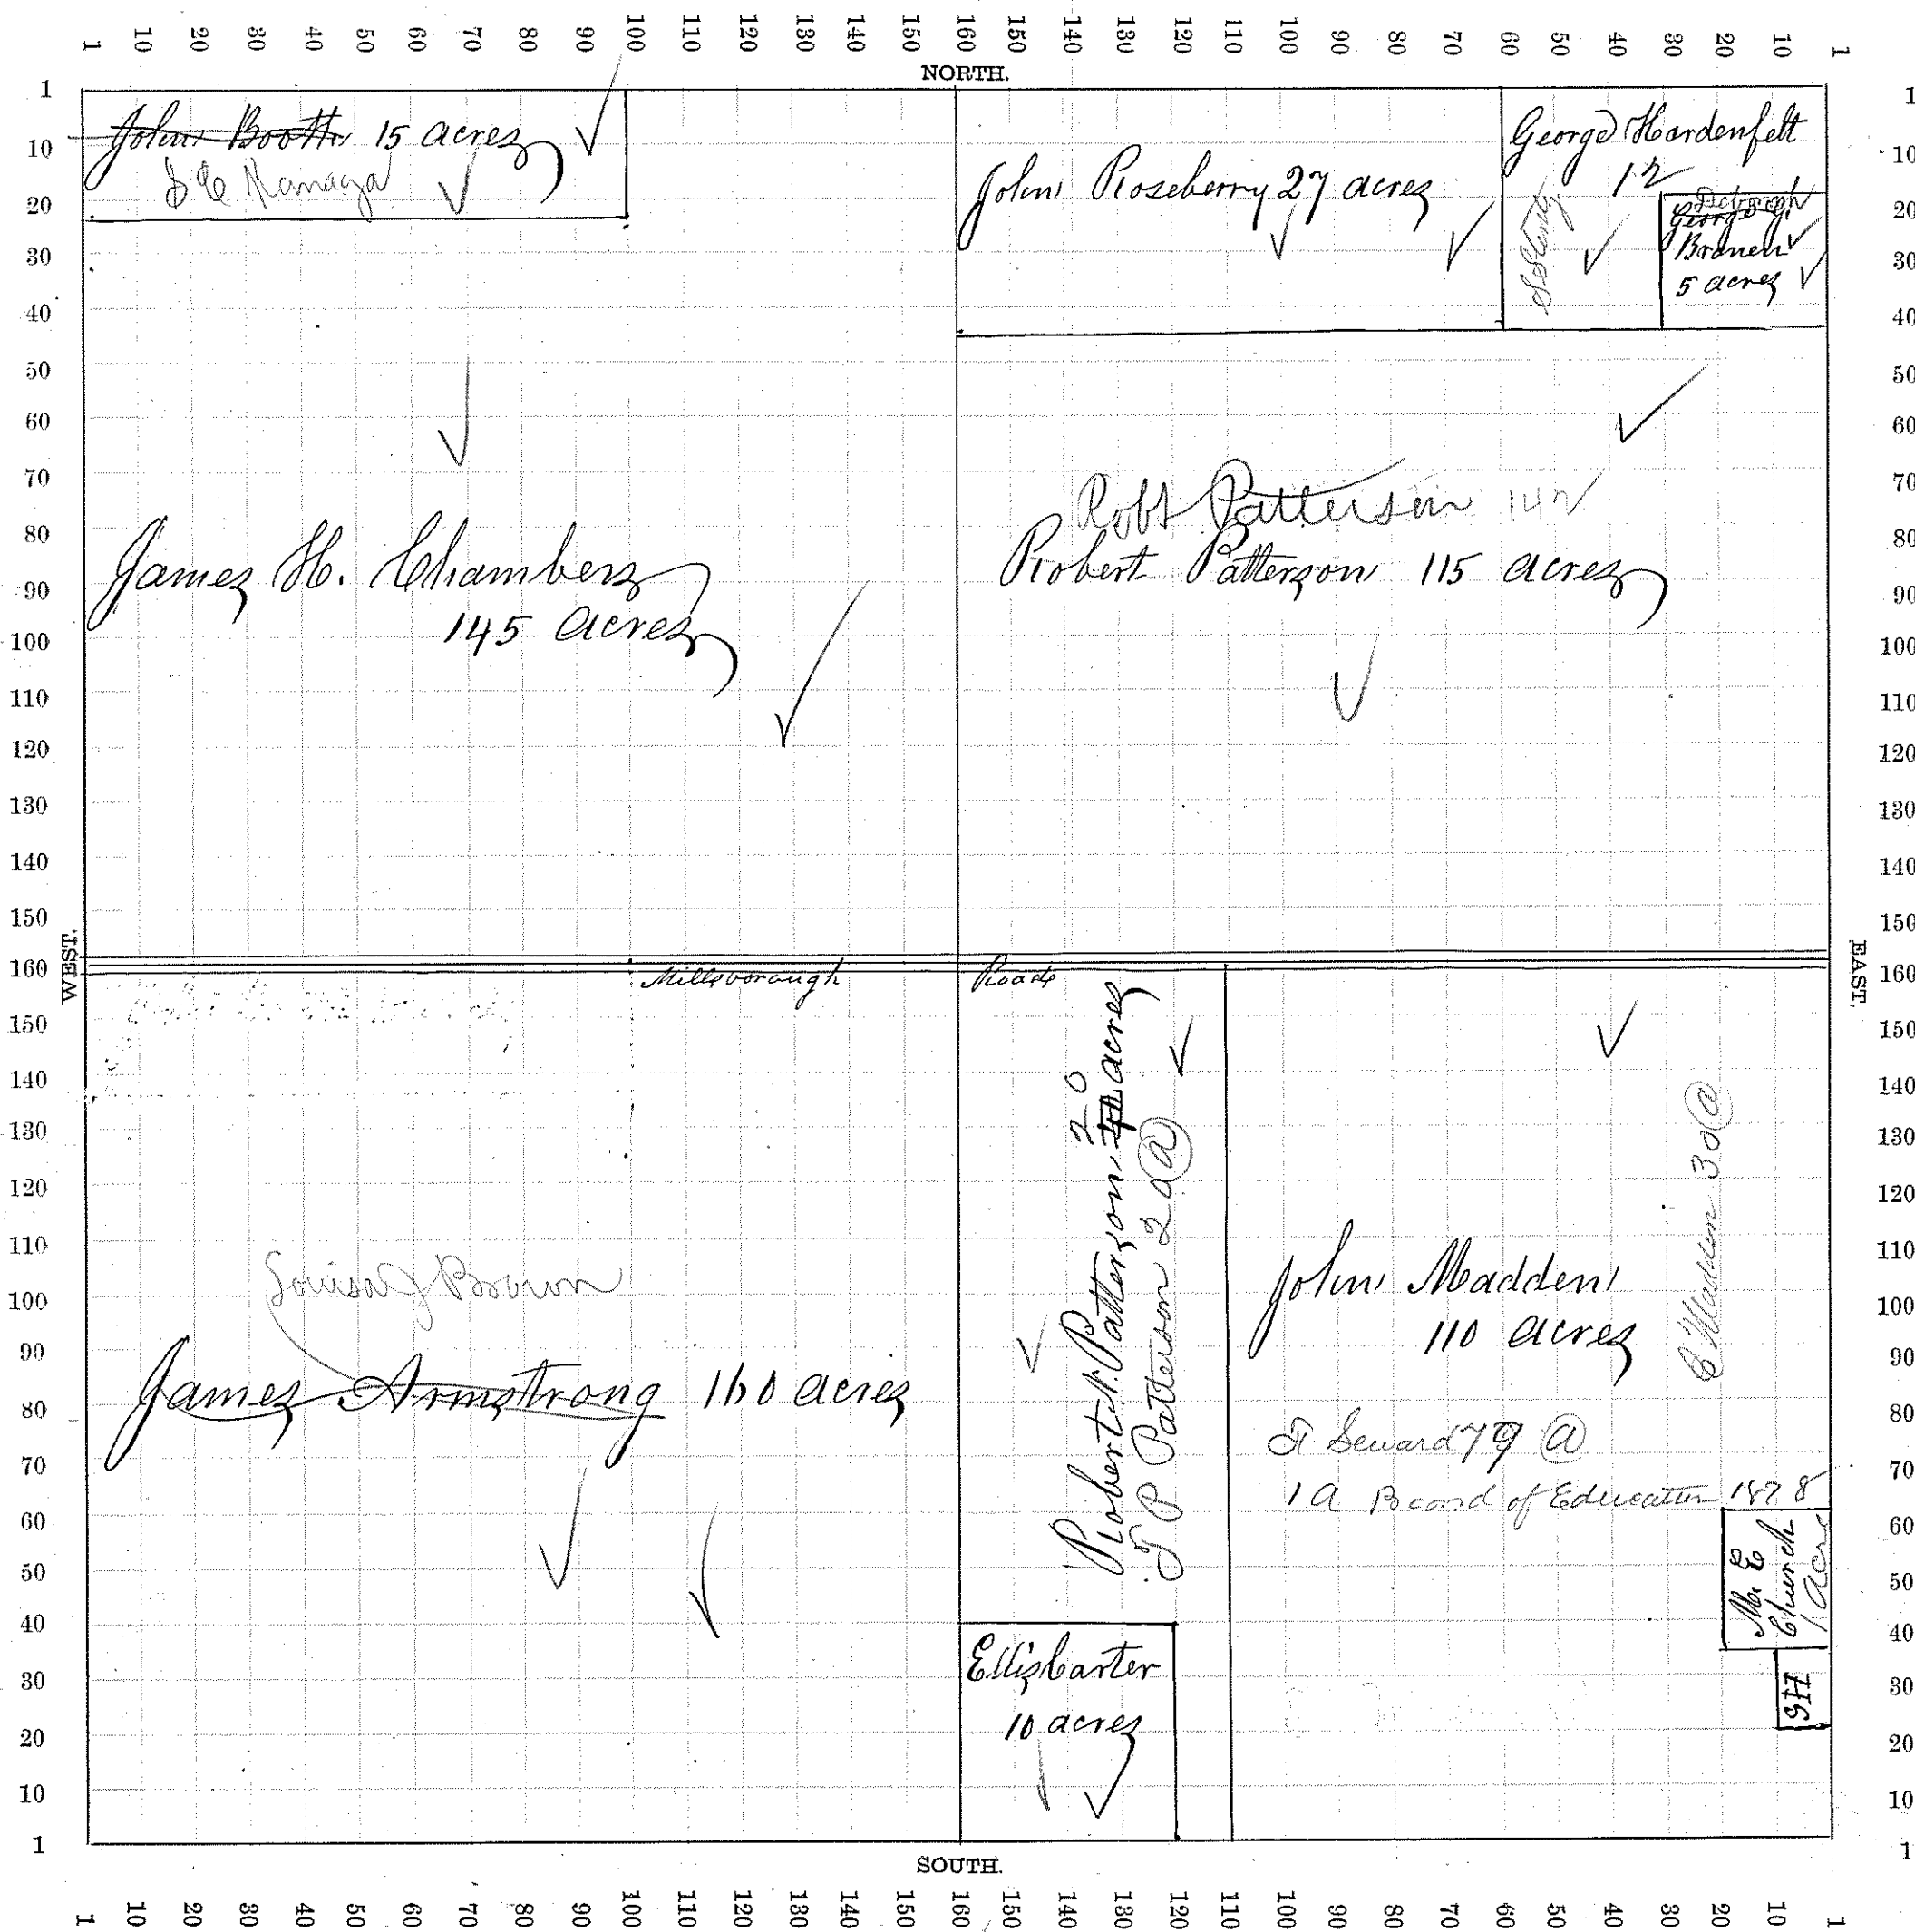 1 10 20 30 40 50 60 70 80 90 100 110 120 130 140 150 160 150 140 130 120 110 100 90 80 70 60 50 40 30 20 10 1
NORTH.
1 10 20 30 40 50 60 70 80 90 100 110 120 130 140 150 160 150 140 130 120 110 100 90 80 70 60 50 40 30 20 10 1
WEST.
John Booth 15 acres
S E Kanaga
John Roseberry 27 acres
George Hardenfelt
12
Deborah
George
Braneu
5 acres
James H. Chambers
145 acres
Robt Patterson 142
Robert Patterson 115 acres
Millsborough Road
Louisa J Brown
James Armstrong 160 acres
20
Robert Patterson 40 acres
J P Patterson 20 a
John Madden
110 acres
C Madden 30 a
Seward 79 a
1 a Board of Education 1878
M. E
Church
1 Acre
SH
Ellis Carter
10 acres
1 10 20 30 40 50 60 70 80 90 100 110 120 130 140 150 160 150 140 130 120 110 100 90 80 70 60 50 40 30 20 10 1
EAST,
SOUTH.
1 10 20 30 40 50 60 70 80 90 100 110 120 130 140 150 160 150 140 130 120 110 100 90 80 70 60 50 40 30 20 10 1